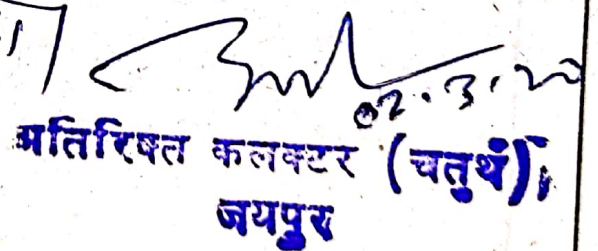 02.3.20
अतिरिक्त कलक्टर (चतुर्थ),
जयपुर